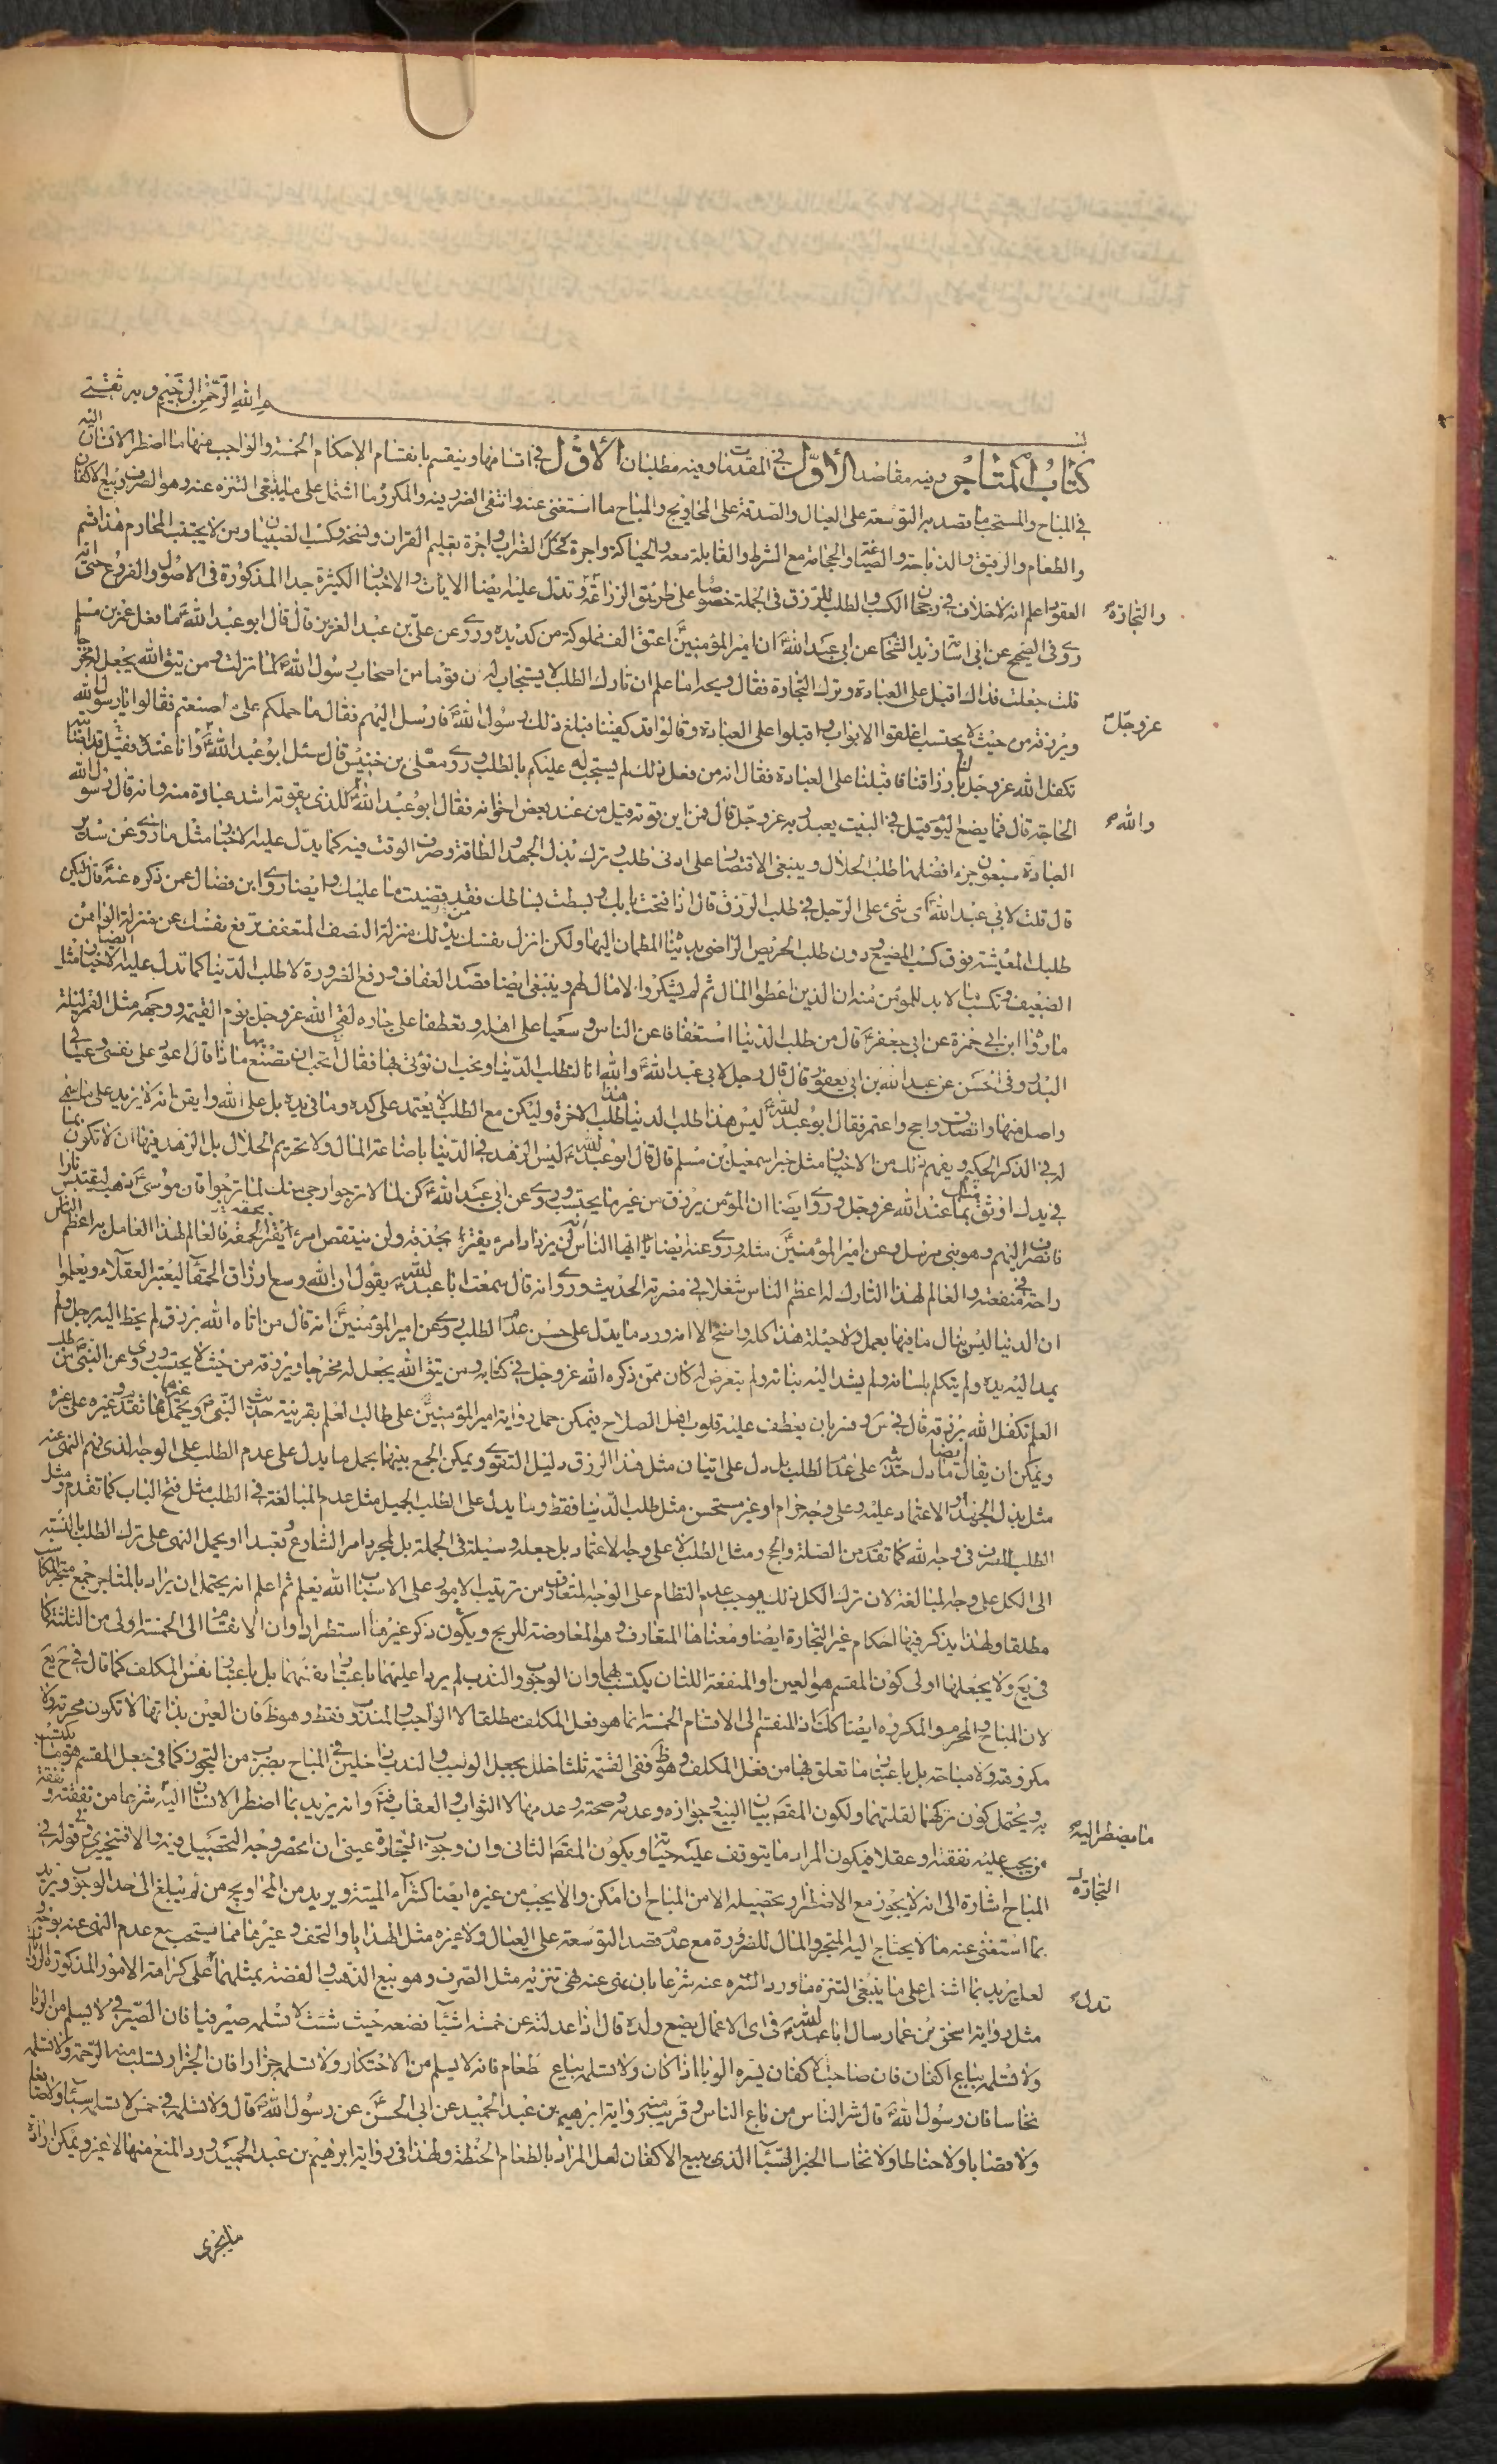 بسم الله الرحمن الرحيم وبه ثقتي
كتاب المتاجر وفيه مقاصد الأول في المقدمات وفيه مطلبان الأول في اقسامها وينقسم بانقسام الاحكام الخمسة والواجب منها ما اضطر الانسان اليه
في المباح والمستحب ما قصد به التوسعة على العيال والصدقة على المحاويج والمباح ما استغنى عنه وانتفى الضرر فيه والمكروه ما اشتمل على ما ينبغي التنزه عنه وهو الصرف وبيع الاكفان
والطعام والرقيق والذباحة والصياغة والحجامة مع الشرط والقابلة معه والحياكة واجرة فحل الضراب واجرة تعليم القران ونسخه وكسب الصبيان ومن لا يجتنب المحارم هذا قسم
العقود اعلم انه لا خلاف في رجحان الكسب والطلب للرزق في الجملة خصوصا على طريق الزراعة وتدل عليه ايضا الايات والاخبار الكثيرة جدا المذكورة في الاصول والفروع حتى انه
والتجارة
روى في الصحيح عن ابي اسامة زيد الشحام عن ابي عبد الله ان امير المؤمنين اعتق الف مملوكة من كد يده وروى عن علي بن عبد العزيز قال قال ابو عبد الله ما فعل عمر بن مسلم
قلت جعلت فداك اقبل على العبادة وترك التجارة فقال ويحه اما علم ان تارك الطلب لا يستجاب له ان قوما من اصحاب رسول الله لما نزلت ومن يتق الله يجعل له مخرجا
ويرزقه من حيث لا يحتسب اغلقوا الابواب واقبلوا على العبادة وقالوا قد كفينا فبلغ ذلك رسول الله فارسل اليهم فقال ما حملكم على ما صنعتم فقالوا يا رسول الله
عز وجل
تكفل الله عز وجل لنا بارزاقنا فاقبلنا على العبادة فقال انه من فعل ذلك لم يستجب له عليكم بالطلب وروى معلى بن خنيس قال سئل ابو عبد الله وانا عنده فقيل قد اصابته
الحاجة قال فما يصنع اليوم قيل في البيت يعبد ربه عز وجل قال فمن اين قوته قيل من عند بعض اخوانه فقال ابو عبد الله للذي يقوته اشد عبادة منه وانه قال رسول الله
والله
العبادة سبعون جزء افضلها طلب الحلال وينبغي الاقتصار على ادنى طلب وترك بذل الجهد والطاقة وصرف الوقت فيه كما يدل عليه الاخبار مثل ما روى عن سدير
قال قلت لابي عبد الله اي شئ على الرجل في طلب الرزق قال اذا فتحت بابك وبسطت بساطك فقد قضيت ما عليك وايضا روى ابن فضال عمن ذكره عنه قال ليكن
طلبك المعيشة فوق كسب المضيع دون طلب الحريص الراضي بدنياه المطمئن اليها ولكن انزل نفسك من ذلك منزلة النصف المتعفف ترفع نفسك عن منزلة الواهن
الضعيف وتكسب ما لا بد للمؤمن منه ان الذين اعطوا المال ثم لم يشكروا لا مال لهم وينبغي ايضا قصد العفاف ورفع الضرورة لا طلب الدنيا كما تدل عليه الاخبار ايضا مثل
ما رواه ابن ابي حمزة عن ابي جعفر قال من طلب الدنيا استعفافا عن الناس وسعيا على اهله وتعطفا على جاره لقى الله عز وجل يوم القيمة ووجهه مثل القمر ليلة
البدر وفي الحسن عن عبد الله بن ابي يعفور قال قال رجل لابي عبد الله والله انا لنطلب الدنيا ونحب ان نؤتى بها فقال تحب ان تصنع بها ماذا قال اعود على نفسي وعيالي
واصل منها واتصدق واحج واعتمر فقال ابو عبد الله ليس هذا طلب الدنيا هذا طلب الاخرة وليكن مع الطلب لا يعتمد على كده وما في يده بل على الله وايقن بانه لا يزيد على ما سمي
له في الذكر الحكيم ويفهم ذلك من الاخبار مثل خبر اسمعيل بن مسلم قال قال ابو عبد الله ليس الزهد في الدنيا باضاعة المال ولا تحريم الحلال بل الزهد فيها ان لا تكون بما
في يدك اوثق منك بما عند الله عز وجل وروى ايضا ان المؤمن يرزق من غير ما يحتسب وروى عن ابي عبد الله كن لما لا ترجوا رجى منك لما ترجوا فان موسى ذهب ليقتبس نارا
فانصرف اليهم وهو نبي مرسل وعن امير المؤمنين مثله وروى عنه ايضا يا ايها الناس انه لن يزداد امرء نقيرا بحذقه ولن ينتقص امرء نقيرا لحمقه فالعالم لهذا العامل به اعظم الناس
راحة في منفعته والعالم لهذا التارك له اعظم الناس شغلا في مضرته الحديث وروى انه قال سمعت ابا عبد الله يقول ان الله وسع ارزاق الحمقاء ليعتبر العقلاء ويعلموا
ان الدنيا ليس ينال ما فيها بعمل ولا حيلة هذا كله واضح الا انه ورد ما يدل على حسن عدم الطلب روى عن امير المؤمنين انه قال من اتاه الله برزق لم يخط اليه برجله ولم
يمد اليه يده ولم يتكلم بلسانه ولم يشد اليه ثيابه ولم يتعرض له كان ممن ذكره الله عز وجل في كتابه ومن يتق الله يجعل له مخرجا ويرزقه من حيث لا يحتسب وروى عن النبي من طلب
العلم تكفل الله برزقه قال في س وفسر بان يعطف عليه قلوب اهل الصلاح فيمكن حمل رواية امير المؤمنين على طالب العلم بقرينة حديث النبي
ويمكن ان يقال ايضا ما دل حديثه على عدم الطلب بل دل على اتيان مثل هذا الرزق دليل التقوى ويمكن الجمع بينهما بحمل ما يدل على عدم الطلب على الوجه الذي فهم النهي عنه
مثل بذل الجهد او الاعتماد عليه وعلى وجه حرام او غير مستحسن مثل طلب الدنيا فقط وما يدل على الطلب الجميل مثل عدم المبالغة في الطلب مثل فتح الباب كما تقدم ومثل
الطلب للصرف في وجه الله كما تقدم من الصلة والحج ومثل الطلب لا على وجه الاعتماد بل جعله وسيلة في الجملة بل لمجرد امر الشارع وتعبدا او يحمل النهي على ترك الطلب بالنسبة
الى الكل على وجه المبالغة لان ترك الكل ذلك يوجب عدم النظام على الوجه المتعارف من ترتيب الامور على الاسباب الله يعلم ثم اعلم انه يحتمل ان يراد بالمتاجر جمع متجر المكاسب
مطلقا ولهذا يذكر فيها احكام غير التجارة ايضا ومعناها المتعارف وهو المعاوضة للربح ويكون ذكر غيرها استطرادا وان الانقسام الى الخمسة اولى من الثلثة كما
في يع ولا يجعلها اولى كون المقسم هو العين او المنفعة اللتان يكتسب بهما وان الوجوب والندب لم يردا عليهما باعتبار نفسهما بل باعتبار نفس المكلف كما قال في ح يع
لان المباح والمحرم والمكروه ايضا كك اذ المنقسم الى الاقسام الخمسة انما هو فعل المكلف مطلقا لا الواجب والمندوب فقط وهو ظ فان العين بذاتها لا تكون محرمة ولا
مكروهة ولا مباحة بل باعتبار ما تعلق بها من فعل المكلف وهو ظ ففي القسمة ثلثا خلل بجعل الواجب والندب داخلين في المباح بضرب من التجوز كما في جعل المقسم هو ما يكتسب
به ويحتمل كون تركهما لقلتهما ولكون المقصود بيان البيع وجوازه وعدمه وصحته وعدمها لا الثواب والعقاب فتم وانه يريد بما اضطر الانسان اليه شرعا من نفقته ونفقة
ما يضطر اليه
من يجب عليه نفقته او عقلا فيكون المراد ما يتوقف عليه حياته ويكون المقصد الثاني وان وجوب التجارة عيني ان انحصر وجه التحصيل فيه والا فتخييري وفي قوله في
التجارة
المباح اشارة الى انه لا يجوز مع الاضطرار تحصيله الا من المباح ان امكن والا يجب من غيره ايضا كشراء الميتة ويريد من المحاويج من لم يبلغ الى حد الوجوب ويريد
بما استغنى عنه ما لا يحتاج اليه المتجر والمال للضرورة مع عدم قصد التوسعة على العيال ولا غيره مثل الهدايا والتحف وغيرها مما يستحب مع عدم النهي عنه بوجه
لعله يريد بما اشتمل على ما ينبغي التنزه ما ورد التنزه عنه شرعا بان نهى عنه نهى تنزيه مثل الصرف وهو بيع الذهب والفضة بمثلهما على كراهة الامور المذكورة
تدل
مثل رواية اسحق بن عمار سال ابا عبد الله في اي الاعمال يضع ولده قال اذا عدلته عن خمسة اشياء فضعه حيث شئت لا تسلمه صيرفيا فان الصيرفي لا يسلم من الربا
ولا تسلمه بياع اكفان فان صاحب الاكفان يسره الوباء اذا كان ولا تسلمه بياع طعام فانه لا يسلم من الاحتكار ولا تسلمه جزارا فان الجزار تسلب منه الرحمة ولا تسلمه
نخاسا فان رسول الله قال شر الناس من باع الناس وقريب منه رواية ابرهيم بن عبد الحميد عن ابي الحسن عن رسول الله قال ولا تسلمه في خمس لا تسلمه سباء ولا صائغا
ولا قصابا ولا حناطا ولا نخاسا الخبر السباء الذي يبيع الاكفان لعل المراد بالطعام الحنطة ولهذا في رواية ابرهيم بن عبد الحميد ورد المنع منها لا غير ويمكن ارادة
ما يجزى